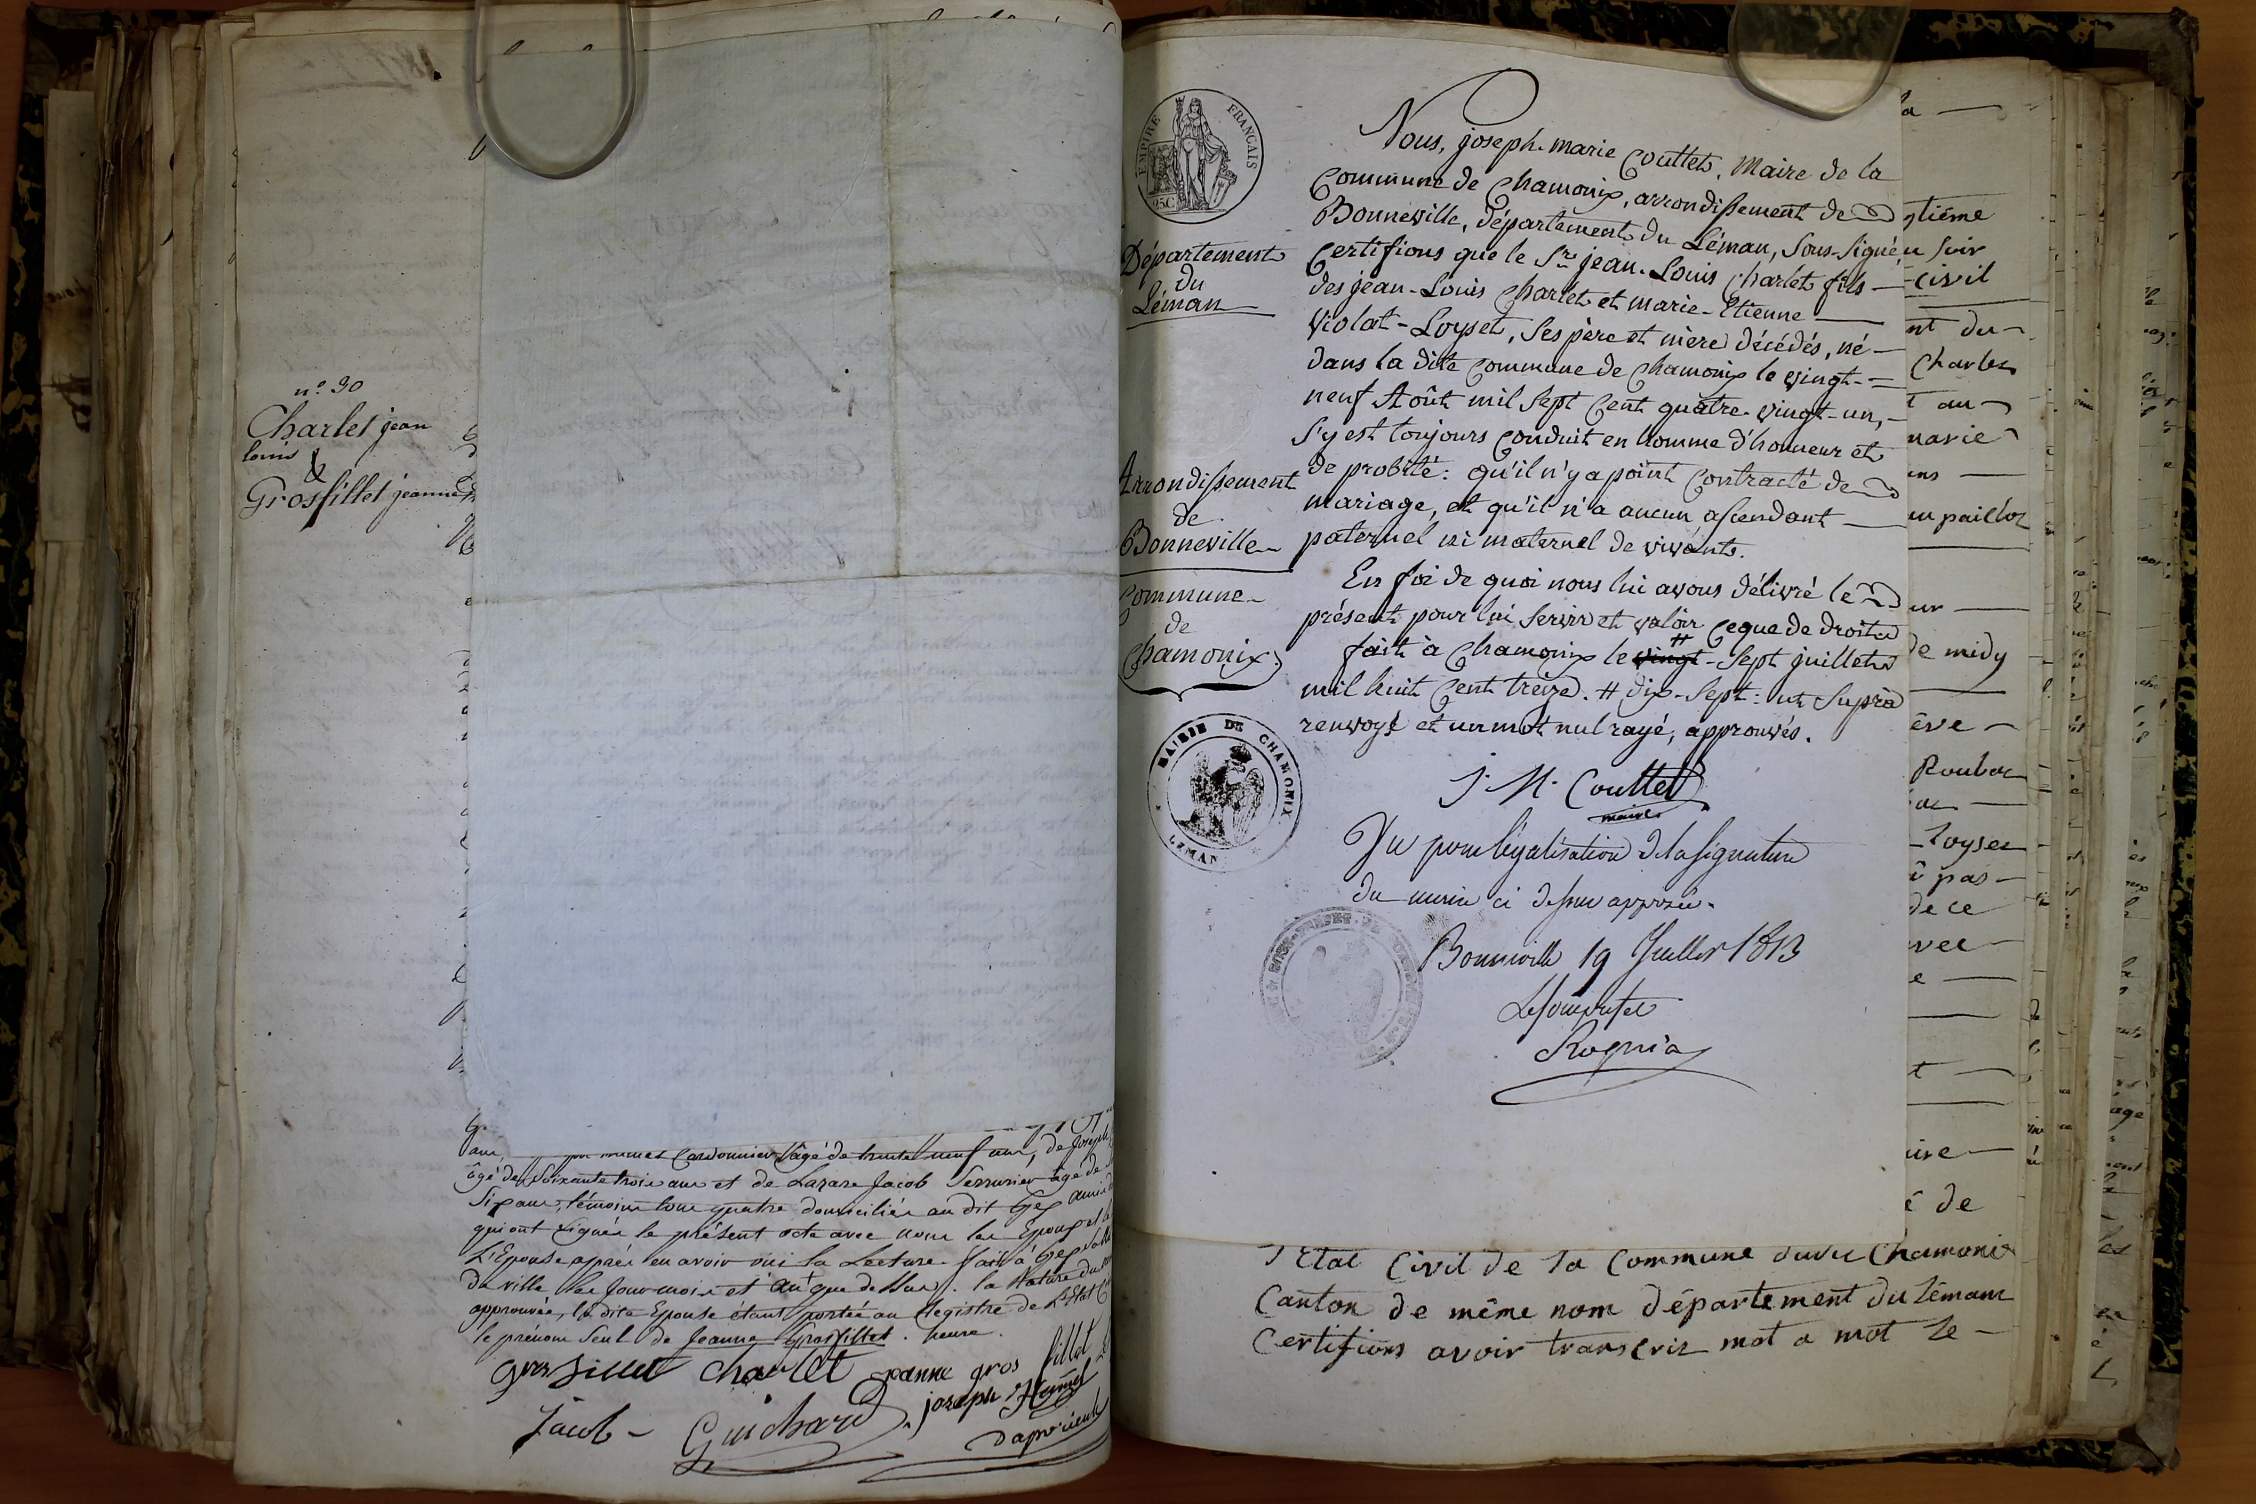 n.° 30
Charlet jean
louis
&
Grosfillet jeanne
Cordonnier âgé de trente neuf ans, de Joseph
âgé de Soixante trois ans et de Lazare Jacob Serrurier âgé de
Six ans, témoins tous quatre domiciliés au dit Gex
qui ont signés le présent acte avec nous les Epoux et
L'Epouse après en avoir oui la Lecture. fait à Gex
de ville les Jour mois et an que dessus. la Rature du
approuvée, la dite Epouse étant portée au Registre de L'Etat
le prénom Seul de Jeanne Grosfillet. heure.
gros fillet Charlet jeanne gros fillet
Jacob Guichard joseph
EMPIRE FRANÇAIS
25C.
Département
du
Léman
Arrondissement
de
Bonneville
Commune
de
Chamonix
MAIRIE DE CHAMONIX
LEMAN
Nous, joseph-marie Couttet, Maire de la
Commune de Chamonix, arrondissement de
Bonneville, département du Léman, Sous-Signé,
Certifions que le Sr. jean-Louis Charlet fils
des jean-Louis Charlet et marie-Etienne
Violat-Loyset, Ses père et mère décédés, né
dans la dite Commune de Chamonix le vingt-
neuf Août mil Sept Cent quatre-vingt-un,
S'y est toujours Conduit en homme d'honneur et
de probité: qu'il n'y a point Contracté de
mariage, et qu'il n'a aucun ascendant
paternel ni maternel de vivants.
En foi de quoi nous lui avons délivré le
présent pour lui Servir et valoir Ceque de droit
#
fait à Chamonix le vingt-Sept juillet
mil huit Cent treize. # dix-Sept: ut Suprà
renvoyé et un mot nul rayé, approuvés.
J. M. Couttet
maire
Vu pour légalisation de la signature
du maire ci dessus apposée.
Bonneville 19 Juillet 1813
Le Souspréfet
Rognia
a
tième
u soir
civil
nt du
Charles
t au
marie
ns
ur
de midy
ève
Loyset
û pas
de ce
vec
e
t
é de
l'Etat Civil de la Commune Chamonix
Canton de même nom département du Léman
Certifions avoir transcrit mot a mot le